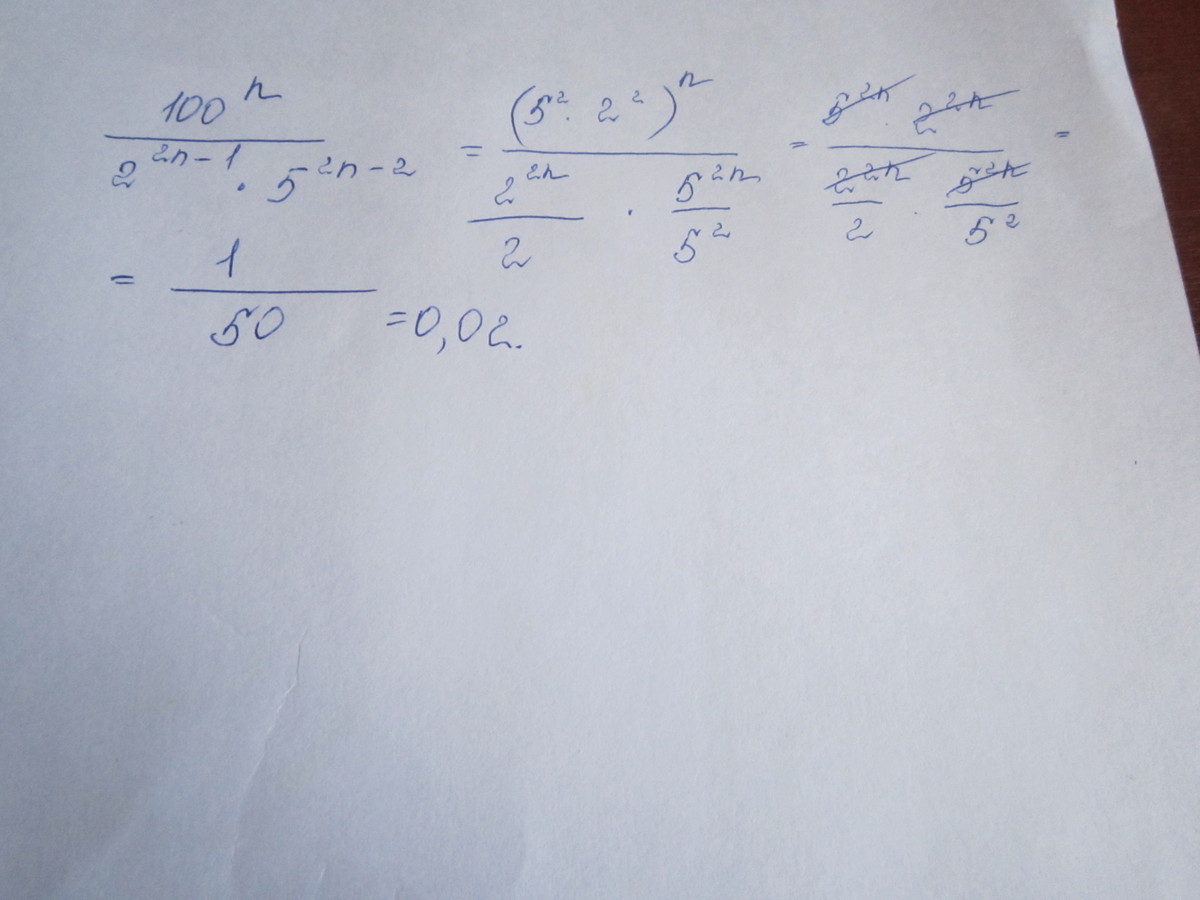 100^n / (2^(2n-1) · 5^(2n-2)) = (5^2 · 2^2)^n / (2^(2n)/2 · 5^(2n)/5^2) = 5^(2n) · 2^(2n) / (2^(2n)/2 · 5^(2n)/5^2) =
= 1/50 = 0,02.